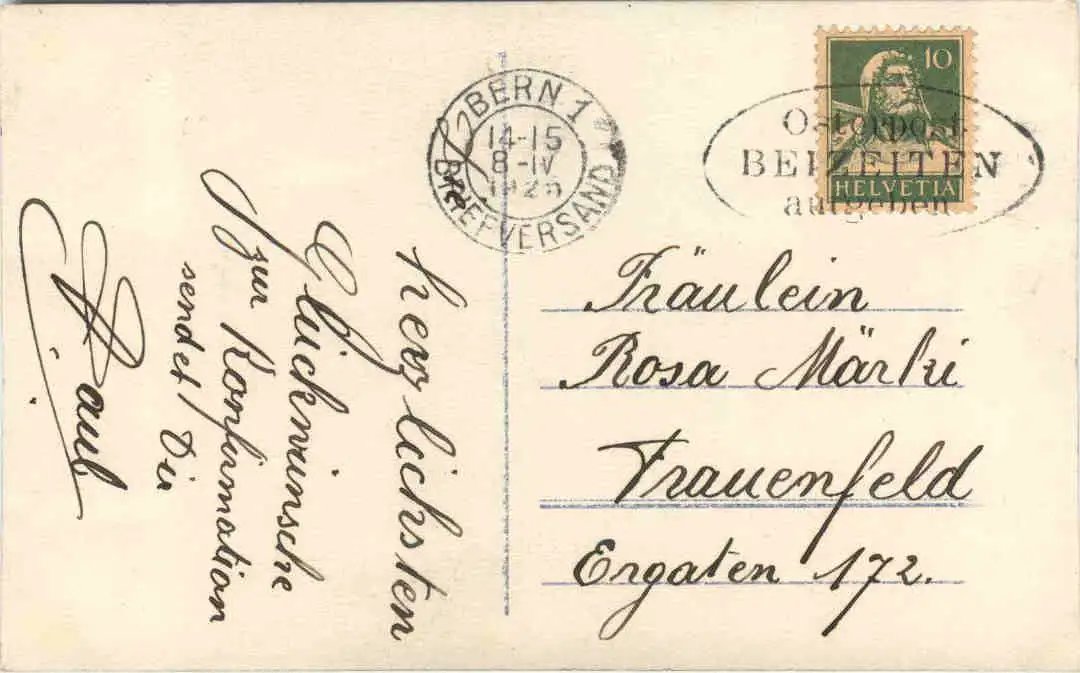 BERN 1
14-15
8-IV
BRIEFVERSAND
Osterpost
BEIZEITEN
aufgeben
10
HELVETIA
Herzlichsten
Glückwünsche
zur Konfirmation
sendet Dir
Paul
Fräulein
Rosa Märki
Frauenfeld
Ergaten 172.